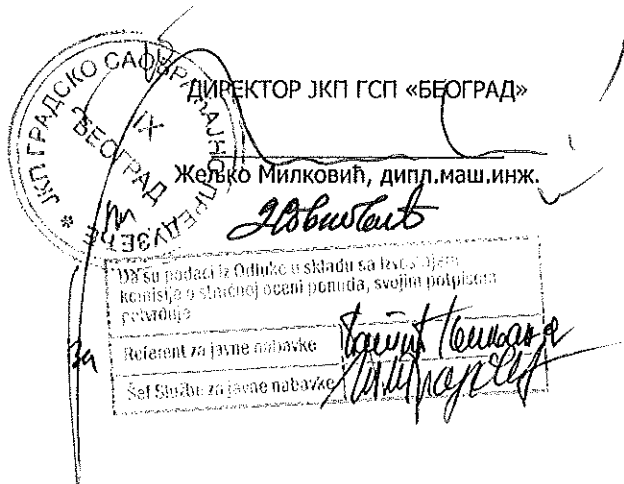 ДИРЕКТОР ЈКП ГСП «БЕОГРАД»
Жељко Милковић, дипл.маш.инж.
ЈКП ГРАДСКО САОБРАЋАЈНО ПРЕДУЗЕЋЕ *
IX
БЕОГРАД
Da su podaci iz Odluke u skladu sa Izveštajem
komisije o stručnoj oceni ponuda, svojim potpisom
potvrđuje
За
Referent za javne nabavke
Šef Službe za javne nabavke